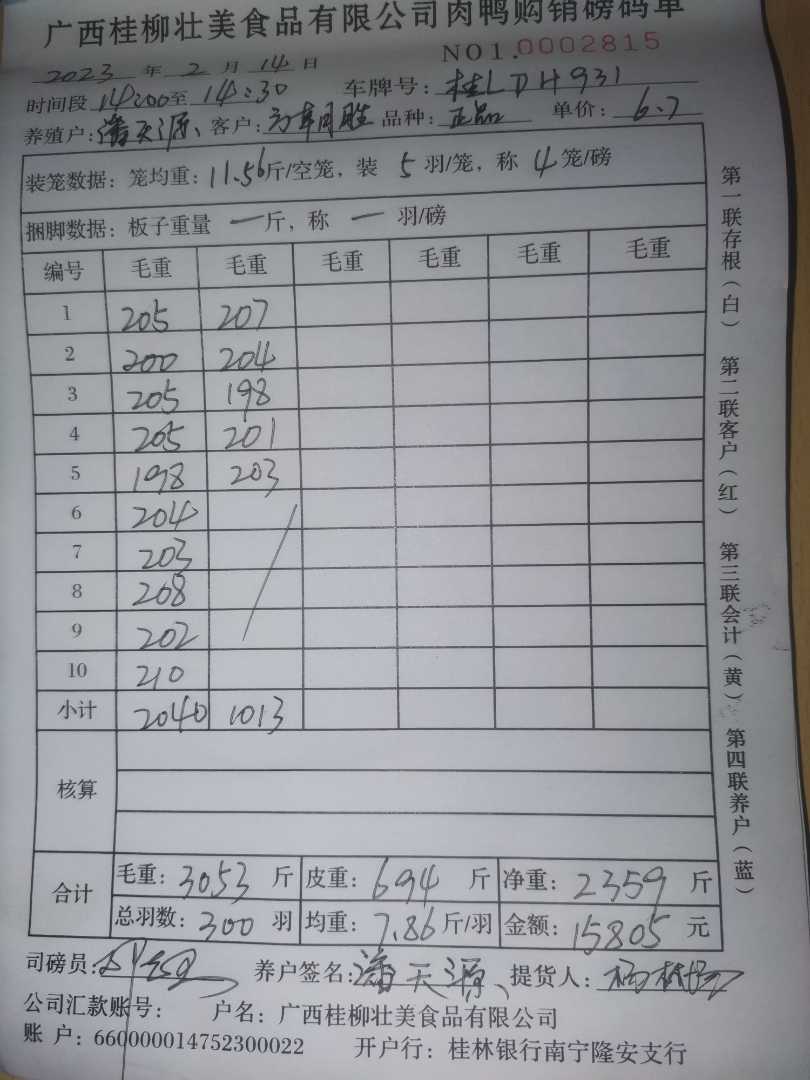 广西桂柳壮美食品有限公司肉鸭购销磅码单
NO1.0002815
2023 年 2 月 14 日
时间段 14:00 至 14:30 车牌号：桂LDH931
养殖户：潘天源、客户： 品种：正品 单价：6.7
装笼数据：笼均重：11.56斤/空笼，装 5 羽/笼，称 4 笼/磅
捆脚数据：板子重量 一 斤，称 一 羽/磅
编号 毛重 毛重 毛重 毛重 毛重 毛重
1 205 207
2 200 204
3 205 198
4 205 201
5 198 203
6 204
7 203
8 208
9 202
10 210
小计 2040 1013
核算
合计 毛重：3053 斤 皮重：694 斤 净重：2359 斤
总羽数：300 羽 均重：7.86 斤/羽 金额：15805 元
司磅员： 养户签名：潘天源、 提货人：
公司汇款账号： 户名：广西桂柳壮美食品有限公司
账 户：660000014752300022 开户行：桂林银行南宁隆安支行
第一联存根（白） 第二联客户（红） 第三联会计（黄） 第四联养户（蓝）